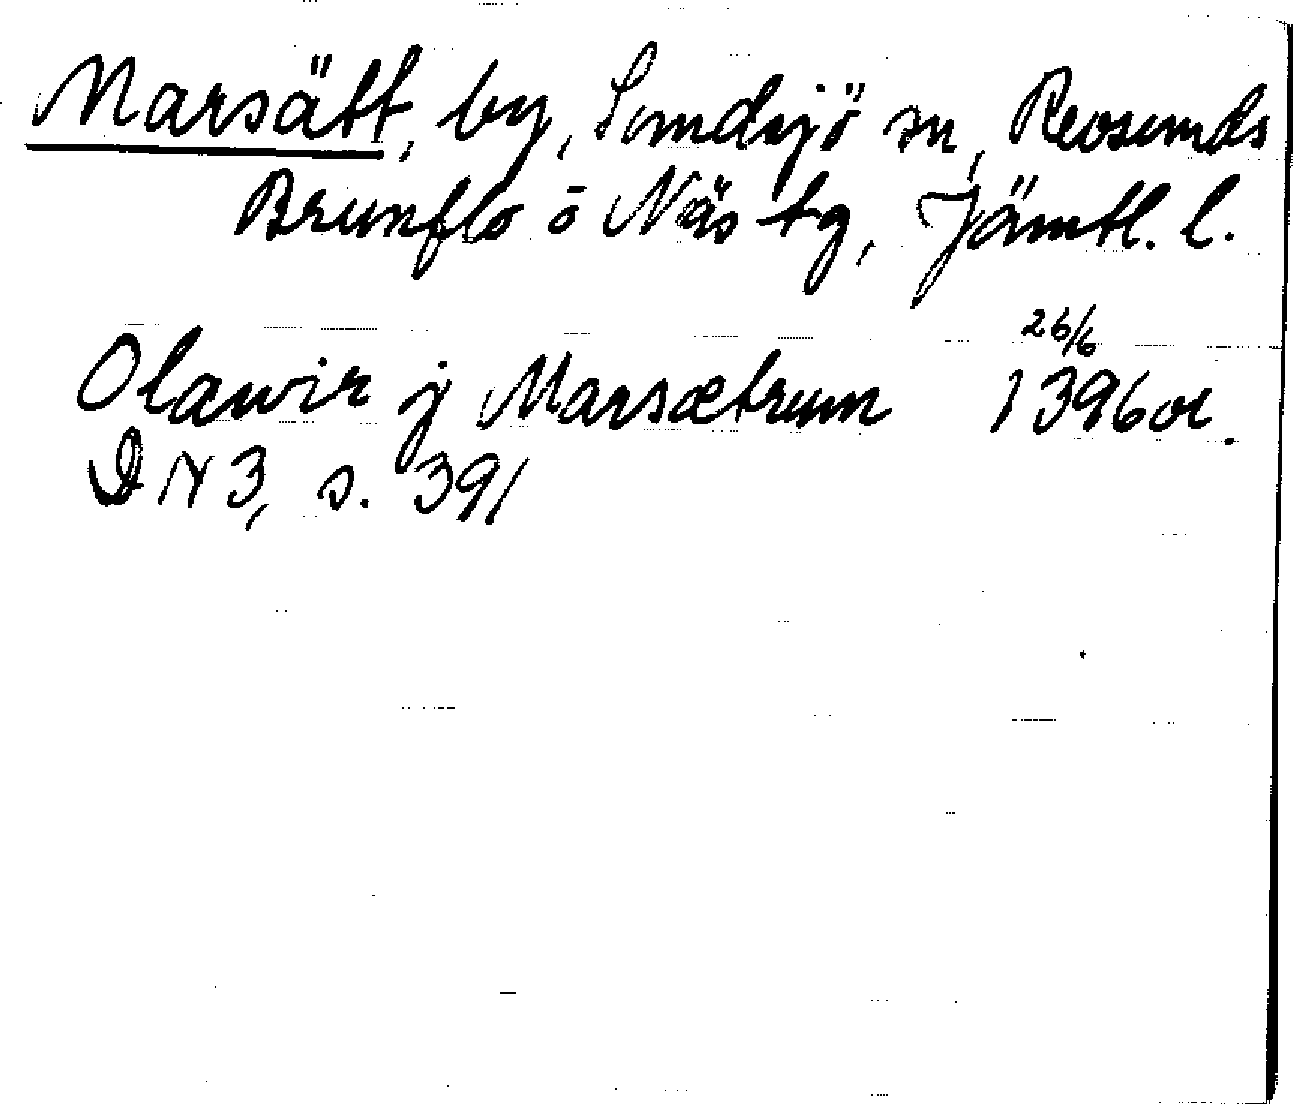 Marsätt, by, Sundsjö sn, Revsunds
Brunflo o Näs tg, Jämtl. l.
Olawir j Marsætrum 26/6 1396 or.
DN 3, s. 391